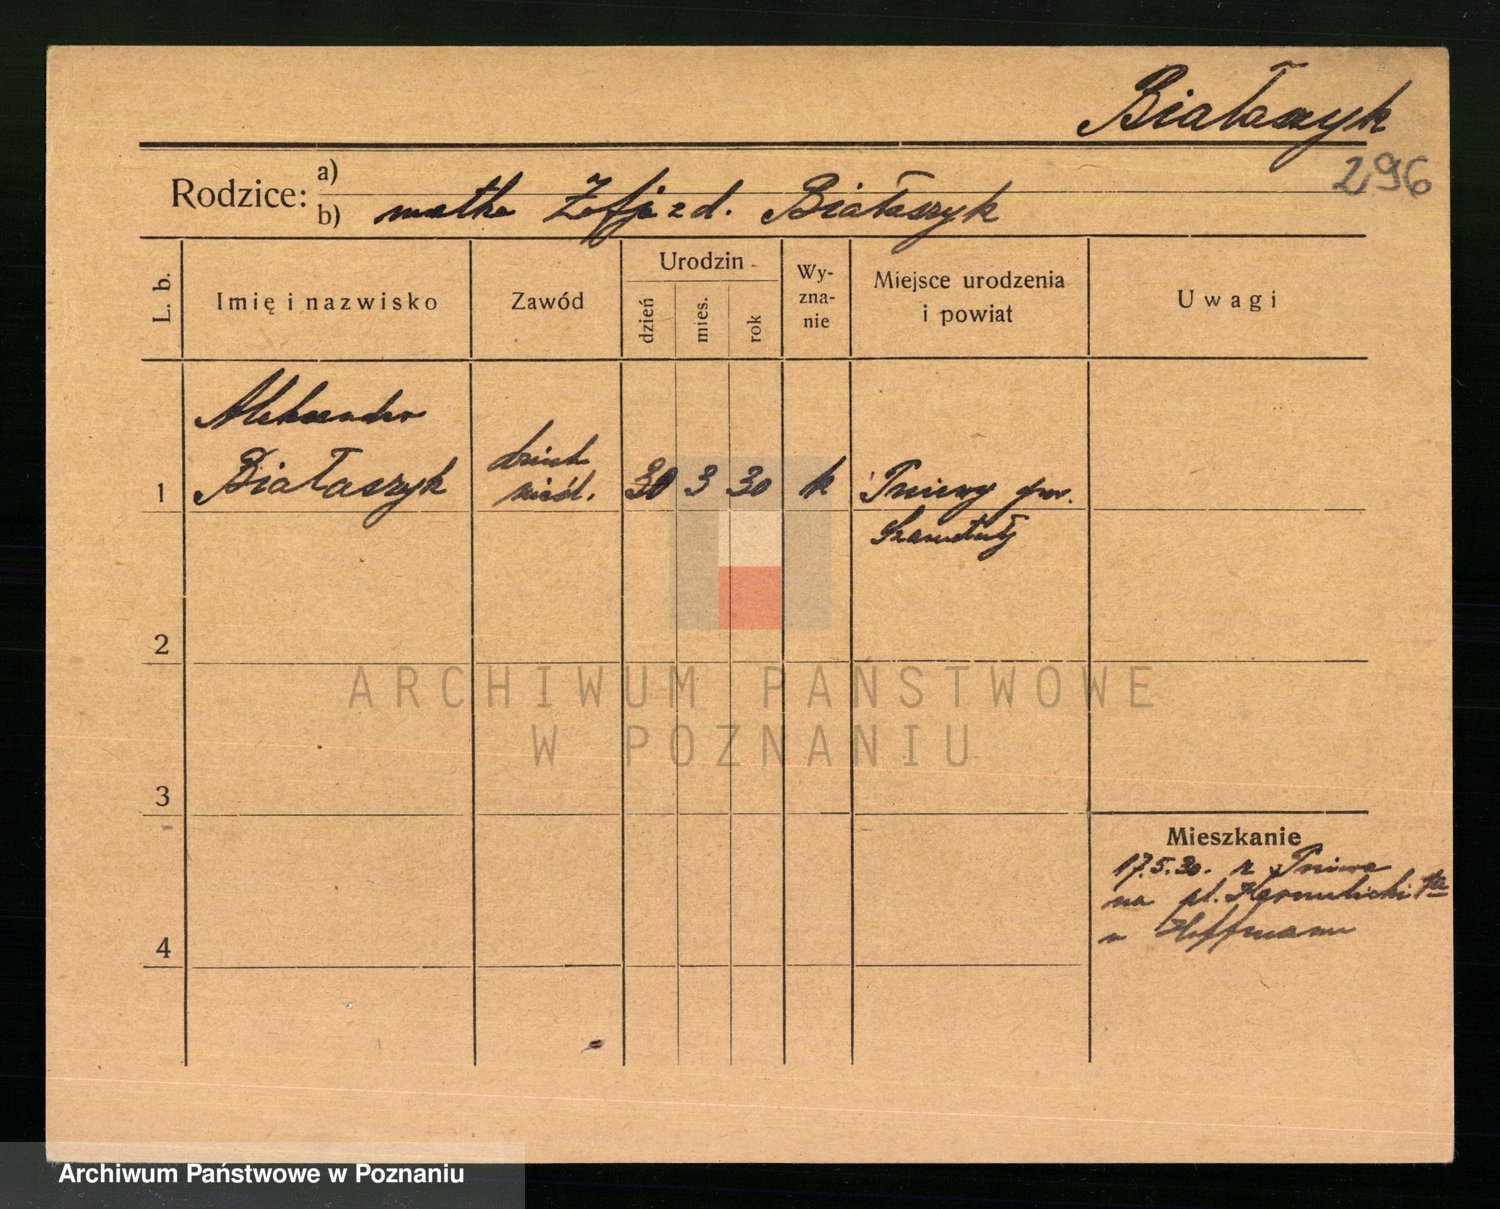 Białaszyk
296
Rodzice: a)
b) matka Zofja z d. Białaszyk
L. b.
Imię i nazwisko
Zawód
Urodzin
dzień
mies.
rok
Wy-
zna-
nie
Miejsce urodzenia
i powiat
Uwagi
Aleksander
1 Białaszyk
dziecko
nieśl.
30 3 30 k Pniewy pow.
Szamotuły
2
3
4
Mieszkanie
17.5.30. z Pniew
na pl.
Hoffmann
ARCHIWUM PAŃSTWOWE
W POZNANIU
Archiwum Państwowe w Poznaniu